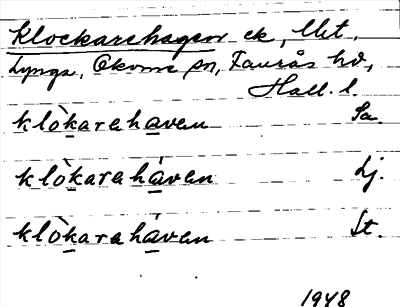 Klockarehagen ek, Mt.
Lyngs, Okome sn, Faurås hd,
Hall. l.
klòkarehaven Sa.
klòkarahàven Lj.
klòkarahàven St.
1948